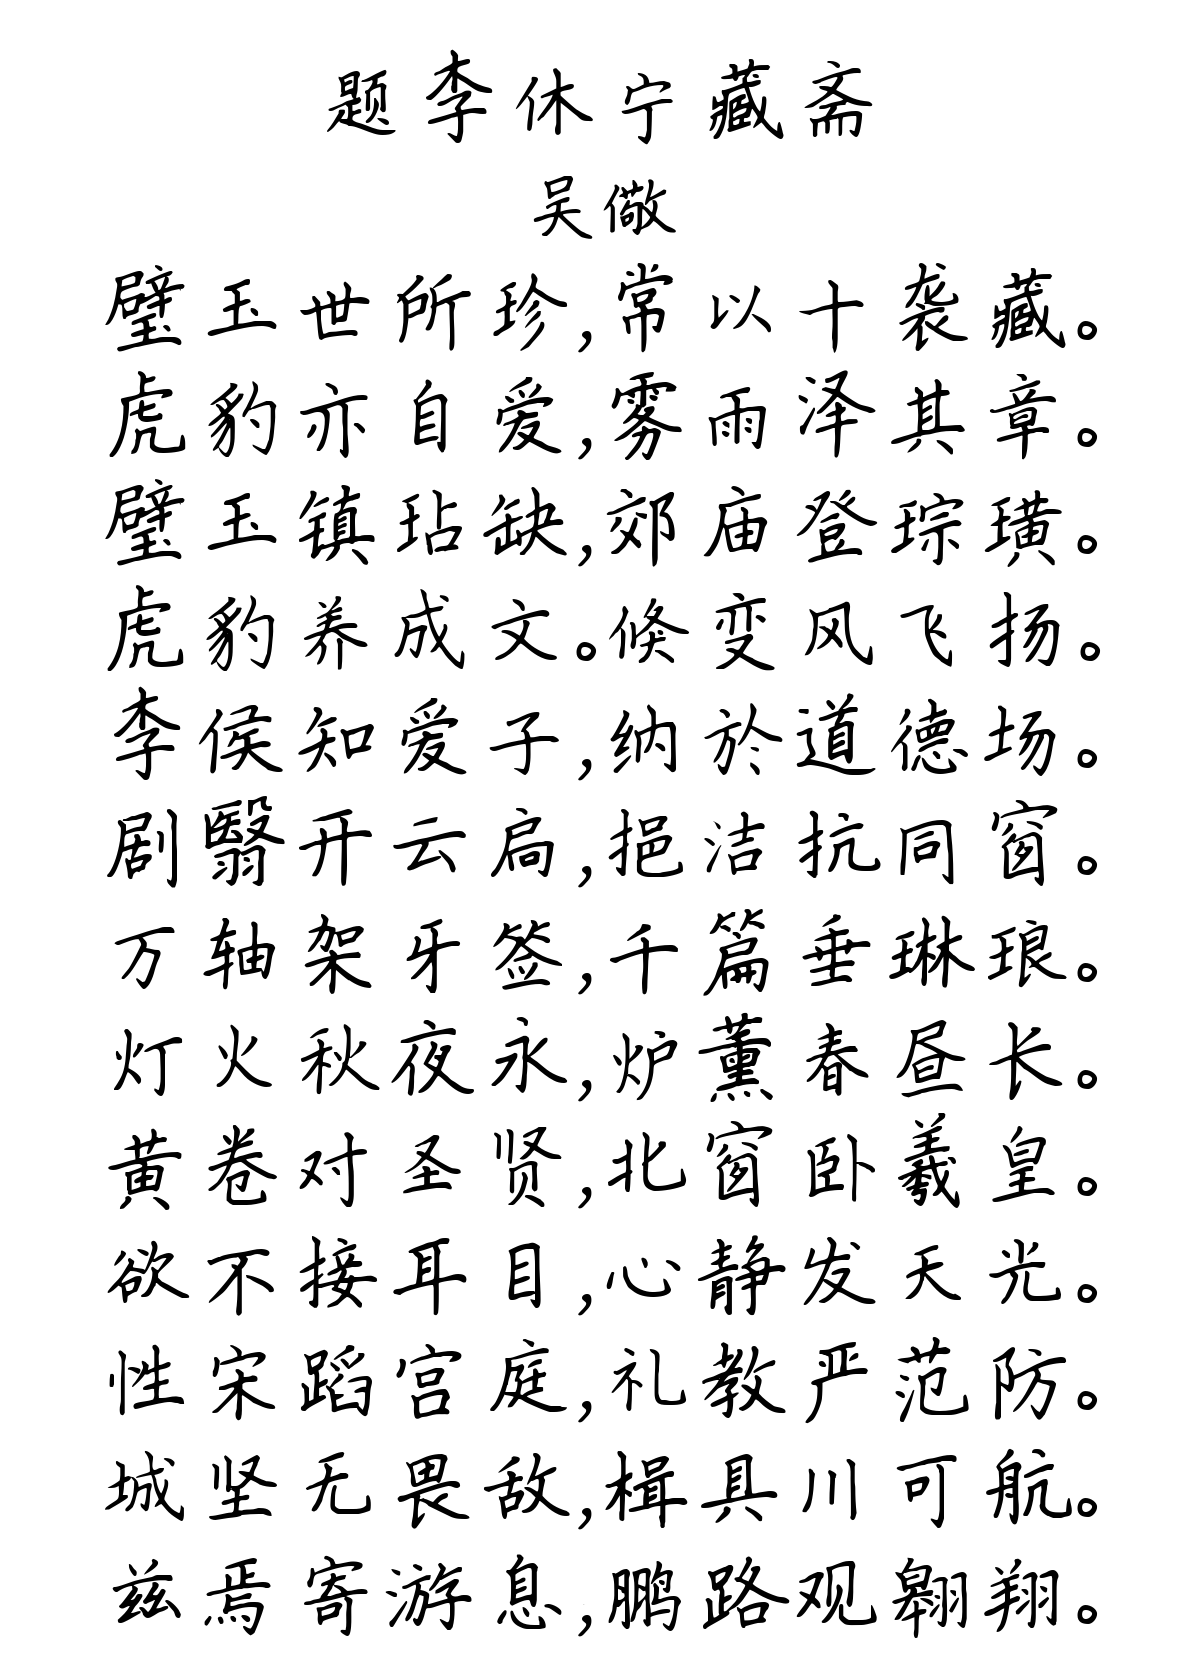 题李休宁藏斋
吴儆
璧玉世所珍,常以十袭藏。
虎豹亦自爱,雾雨泽其章。
璧玉镇玷缺,郊庙登琮璜。
虎豹养成文。倏变风飞扬。
李侯知爱子,纳於道德场。
剧翳开云扃,挹洁抗同窗。
万轴架牙签,千篇垂琳琅。
灯火秋夜永,炉薰春昼长。
黄卷对圣贤,北窗卧羲皇。
欲不接耳目,心静发天光。
性宋蹈宫庭,礼教严范防。
城坚无畏敌,楫具川可航。
兹焉寄游息,鹏路观翱翔。